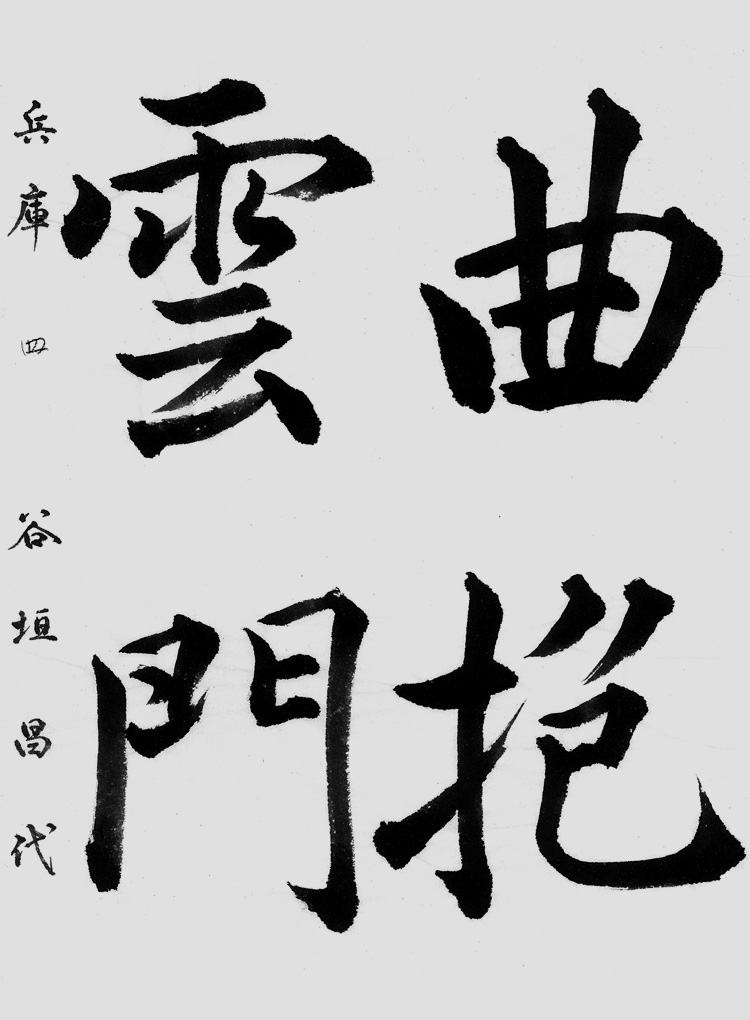 曲抱
雲門
兵庫 四 谷垣昌代